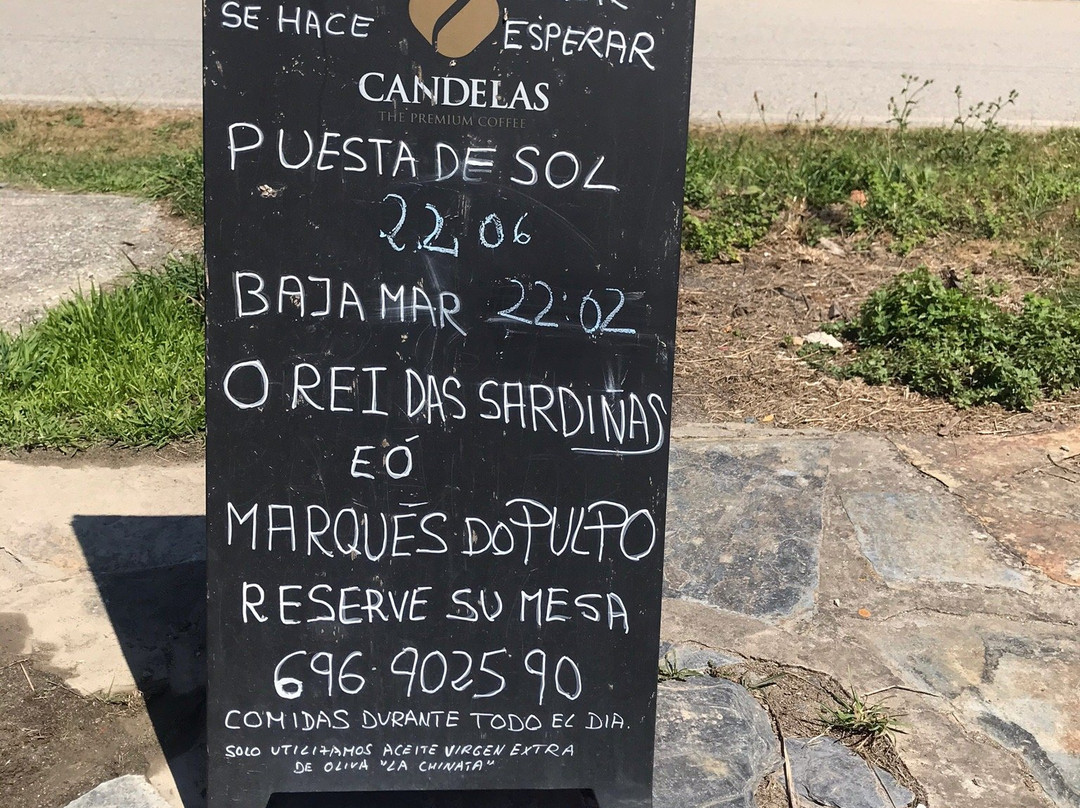 SE HACE ESPERAR
CANDELAS
THE PREMIUM COFFEE
PUESTA DE SOL
22 06
BAJA MAR 22:02
O REI DAS SARDIÑAS
E Ó
MARQUÉS DO PULPO
RESERVE SU MESA
696·902590
COMIDAS DURANTE TODO EL DIA.
SOLO UTILIZAMOS ACEITE VIRGEN EXTRA
DE OLIVA "LA CHINATA"